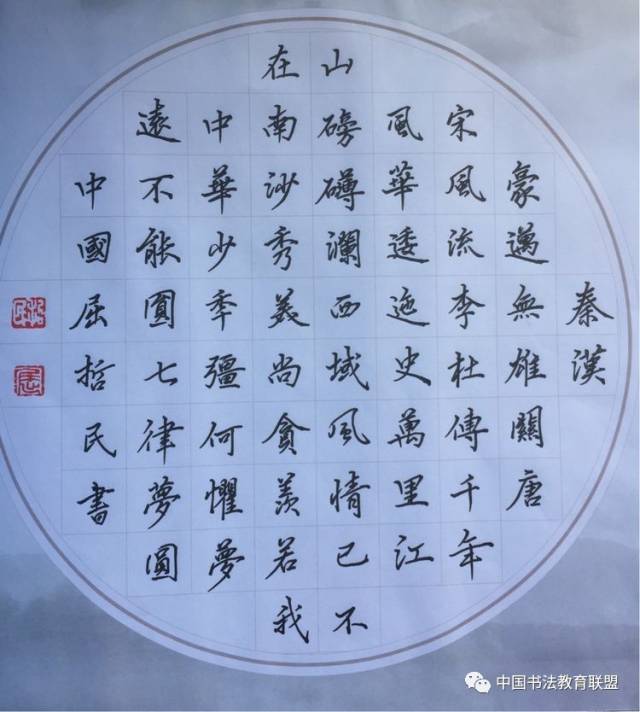 秦漢
豪邁無雄關唐
宋風流李杜傳千年
風華逶迤史萬里江
山磅礴瀾西域風情已不
在南沙秀美尚貪羨若我
中華少年彊何懼夢
遠不能圓七律夢圓
中國屈哲民書
中国书法教育联盟